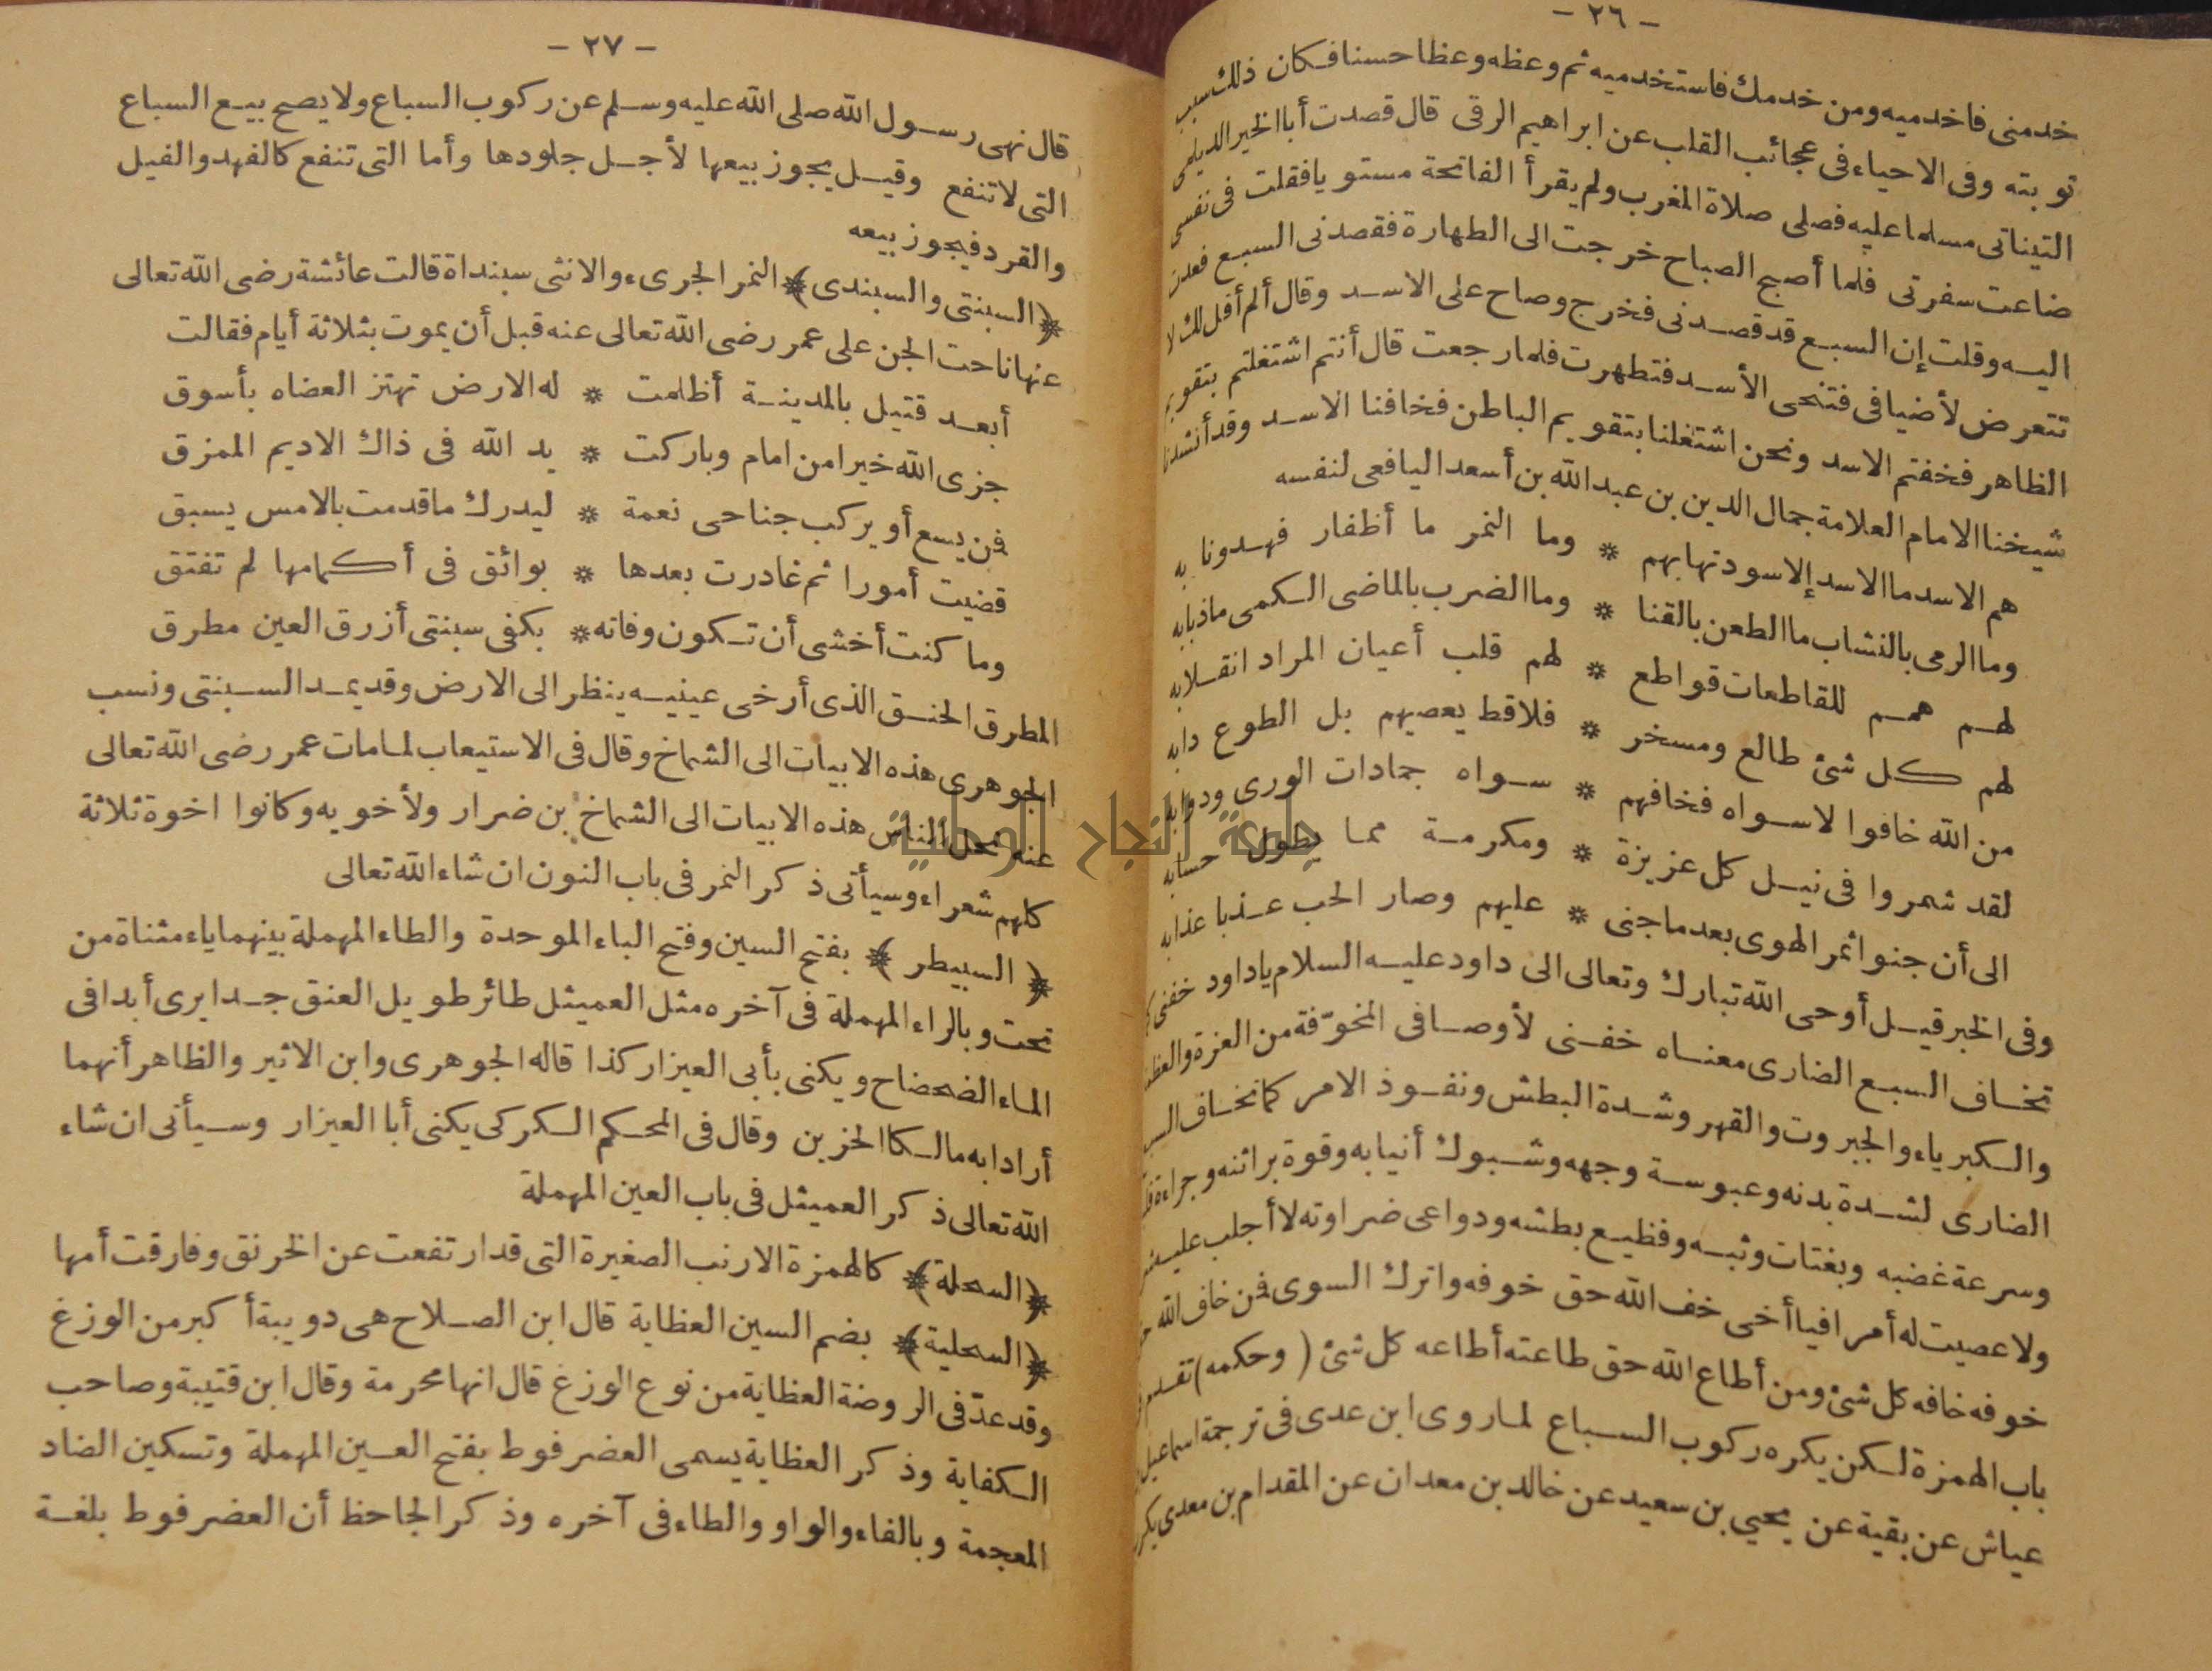 - ٢٦ -
خدمنى فاخدميه ومن خدمك فاستخدميه ثم وعظه وعظا حسنا فكان ذلك سبب
توبته وفى الاحياء فى عجائب القلب عن ابراهيم الرقى قال قصدت أبا الخير الديلمى
التيناتى مسلما عليه فصلى صلاة المغرب ولم يقرأ الفاتحة مستويا فقلت فى نفسى
ضاعت سفرتى فلما أصبح الصباح خرجت الى الطهارة فقصدنى السبع فعدت
اليه وقلت إن السبع قد قصدنى فخرج وصاح على الاسد وقال ألم أقل لك لا
تتعرض لأضيافى فتنحى الأسد فتطهرت فلما رجعت قال أنتم اشتغلتم بتقويم
الظاهر فخفتم الاسد ونحن اشتغلنا بتقويم الباطن فخافنا الاسد وقد أنشدنا
شيخنا الامام العلامة جمال الدين بن عبد الله بن أسعد اليافعى لنفسه
هم الاسد ما الاسد إلاسود تهابهم * وما النمر ما أظفار فهد ونابه
وما الرمى بالنشاب ما الطعن بالقنا * وما الضرب بالماضى الكمى ماذبابه
لهم همم للقاطعات قواطع * لهم قلب أعيان المراد انقلابه
لهم كل شئ طالع ومسخر * فلا قط يعصيهم بل الطوع دابه
من الله خافوا لاسواه فخافهم * سواه جمادات الورى ودوابه
لقد شمروا فى نيل كل عزيزة * ومكرمة مما يطول حسابه
الى أن جنوا ثمر الهوى بعد ماجنى * عليهم وصار الحب عذبا عذابه
وفى الخبر قيل أوحى الله تبارك وتعالى الى داود عليه السلام ياداود خفنى
تخاف السبع الضارى معناه خفنى لأوصافى المخوّفة من العزة والعظمة
والكبرياء والجبروت والقهر وشدة البطش ونفوذ الامر كما تخاف
الضارى لشدة بدنه وعبوسة وجهه وشبوك أنيابه وقوة براثنه وجراءة
وسرعة غضبه وبغتات وثبه وفظيع بطشه ودواعى ضراوته لا أجلب
ولا عصيت له أمرا فيا أخى خف الله حق خوفه واترك السوى فمن خاف الله
خوفه خافه كل شئ ومن أطاع الله حق طاعته أطاعه كل شئ (وحكمه) تقدم
باب الهمزة لكن يكره ركوب السباع لما روى ابن عدى فى ترجمة اسماعيل
عياش عن بقية عن يحيي بن سعيد عن خالد بن معدان عن المقدام بن معدى
- ٢٧ -
قال نهى رسول الله صلى الله عليه وسلم عن ركوب السباع ولا يصح بيع السباع
التى لا تنفع وقيل يجوز بيعها لأجل جلودها وأما التى تنفع كالفهد والفيل
والقرد فيجوز بيعه
﴿السبنتى والسبندى﴾ النمر الجرىء والانثى سبنداة قالت عائشة رضى الله تعالى
عنها ناحت الجن على عمر رضى الله تعالى عنه قبل أن يموت بثلاثة أيام فقالت
أبعد قتيل بالمدينة أظلمت * له الارض تهتز العضاه بأسوق
جزى الله خيرا من امام وباركت * يد الله فى ذاك الاديم الممزق
فمن يسع أو يركب جناحى نعمة * ليدرك ما قدمت بالامس يسبق
قضيت أمورا ثم غادرت بعدها * بوائق فى أكمامها لم تفتق
وما كنت أخشى أن تكون وفاته * بكفى سبنتى أزرق العين مطرق
المطرق الحنق الذى أرخى عينيه ينظر الى الارض وقد يمد السبنتى ونسب
الجوهرى هذه الابيات الى الشماخ وقال فى الاستيعاب لما مات عمر رضى الله تعالى
عنه نحل الناس هذه الابيات الى الشماخ بن ضرار ولأخويه وكانوا اخوة ثلاثة
كلهم شعراء وسيأتى ذكر النمر فى باب النون ان شاء الله تعالى
﴿السبيطر﴾ بفتح السين وفتح الباء الموحدة والطاء المهملة بينهما ياء مثناة من
تحت وبالراء المهملة فى آخره مثل العميثل طائر طويل العنق جدا يرى أبدا فى
الماء الضحضاح ويكنى بأبى العيزار كذا قاله الجوهرى وابن الاثير والظاهر أنهما
أرادا به مالكا الحزين وقال فى المحكم الكركى يكنى أبا العيزار وسيأتى ان شاء
الله تعالى ذكر العميثل فى باب العين المهملة
﴿السحلة﴾ كالهمزة الارنب الصغيرة التى قد ارتفعت عن الخرنق وفارقت أمها
﴿السحلية﴾ بضم السين العظاية قال ابن الصلاح هى دويبة أكبر من الوزغ
وقد عدّ فى الروضة العظاية من نوع الوزغ قال انها محرمة وقال ابن قتيبة وصاحب
الكفاية وذكر العظاية يسمى العضرفوط بفتح العين المهملة وتسكين الضاد
المعجمة وبالفاء والواو والطاء فى آخره وذكر الجاحظ أن العضرفوط بلغة
جامعة النجاح الوطنية